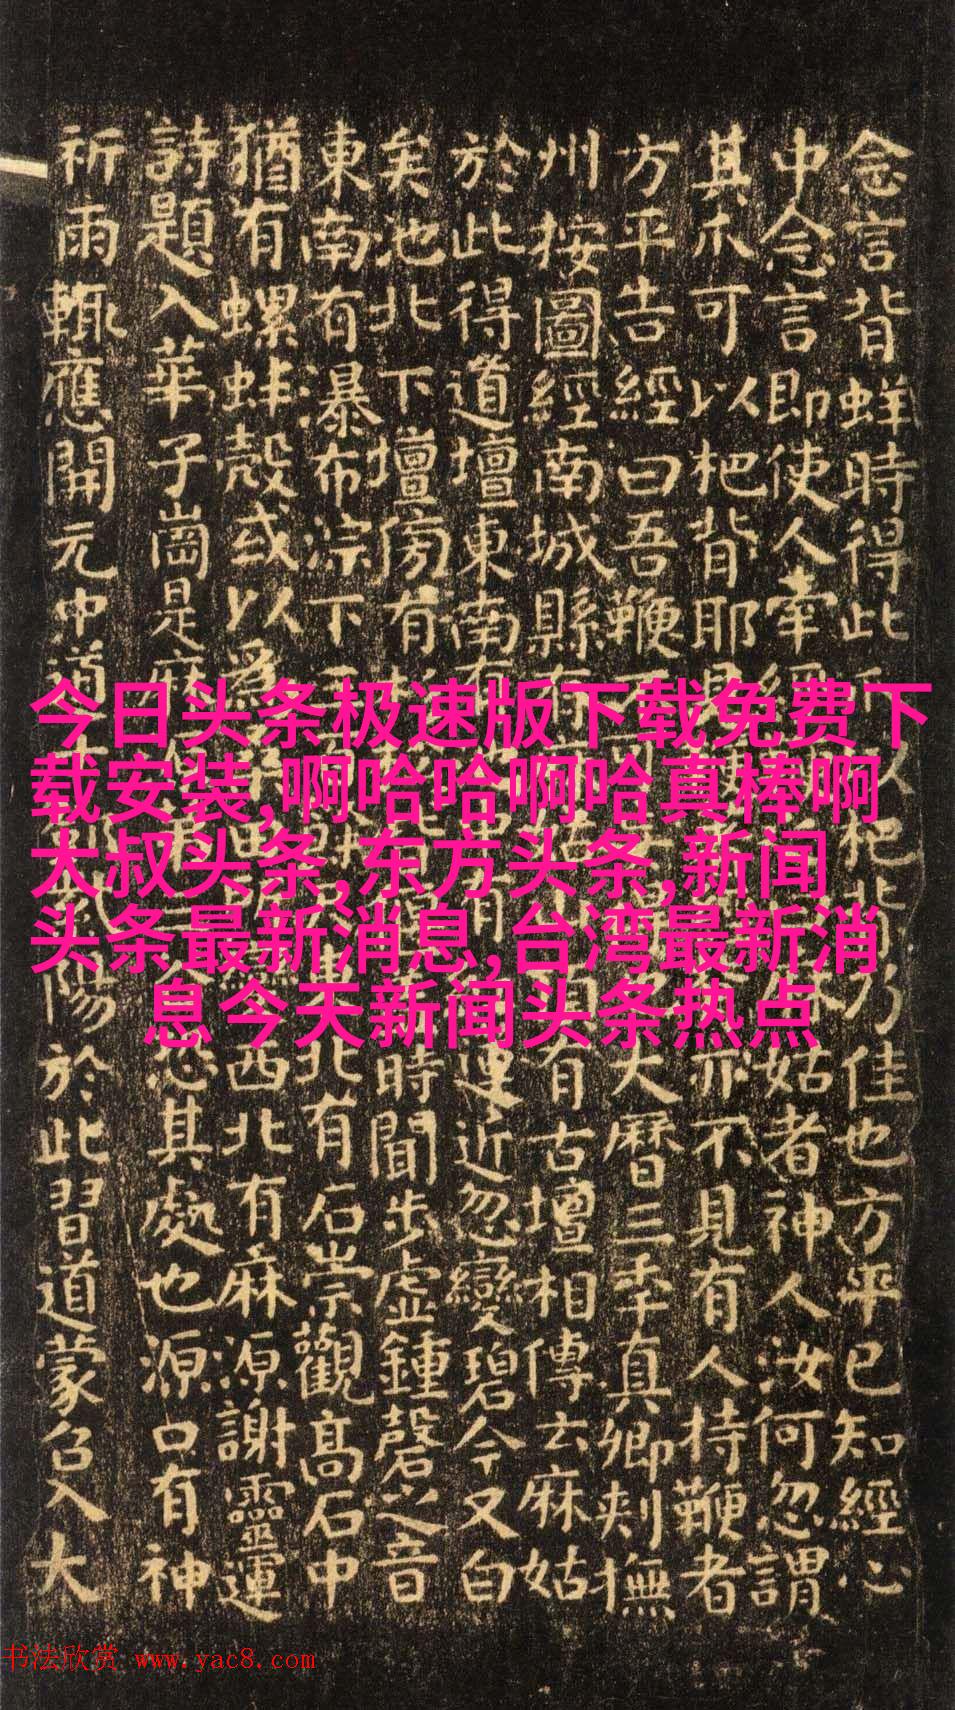 念言背蛘時得此以杷背乃佳也方平已知經心
中念言即使人牽姑者神人汝何忽謂
其爪可以杷背耶見亦不見有人持鞭者
方平告經曰吾鞭不大曆三年真卿刺撫
州按圖經南城縣有頂有古壇相傳云麻姑
於此得道壇東南有中有蓮近忽變碧今又白
矣池北下壇傍有時聞步虛鍾磬之音
東南有瀑布淙下三東北有石崇觀高石中
猶有螺蚌殼或以為桑田西北有麻源謝靈運
詩題入華子崗是麻恐其處也源口有神
祈雨輒應開元中道陽於此習道蒙召入大
今日头条极速版下载免费下
载安装,啊哈哈啊哈真棒啊
大叔头条,东方头条,新闻
头条最新消息,台湾最新消
息今天新闻头条热点
书法欣赏 www.yac8.com